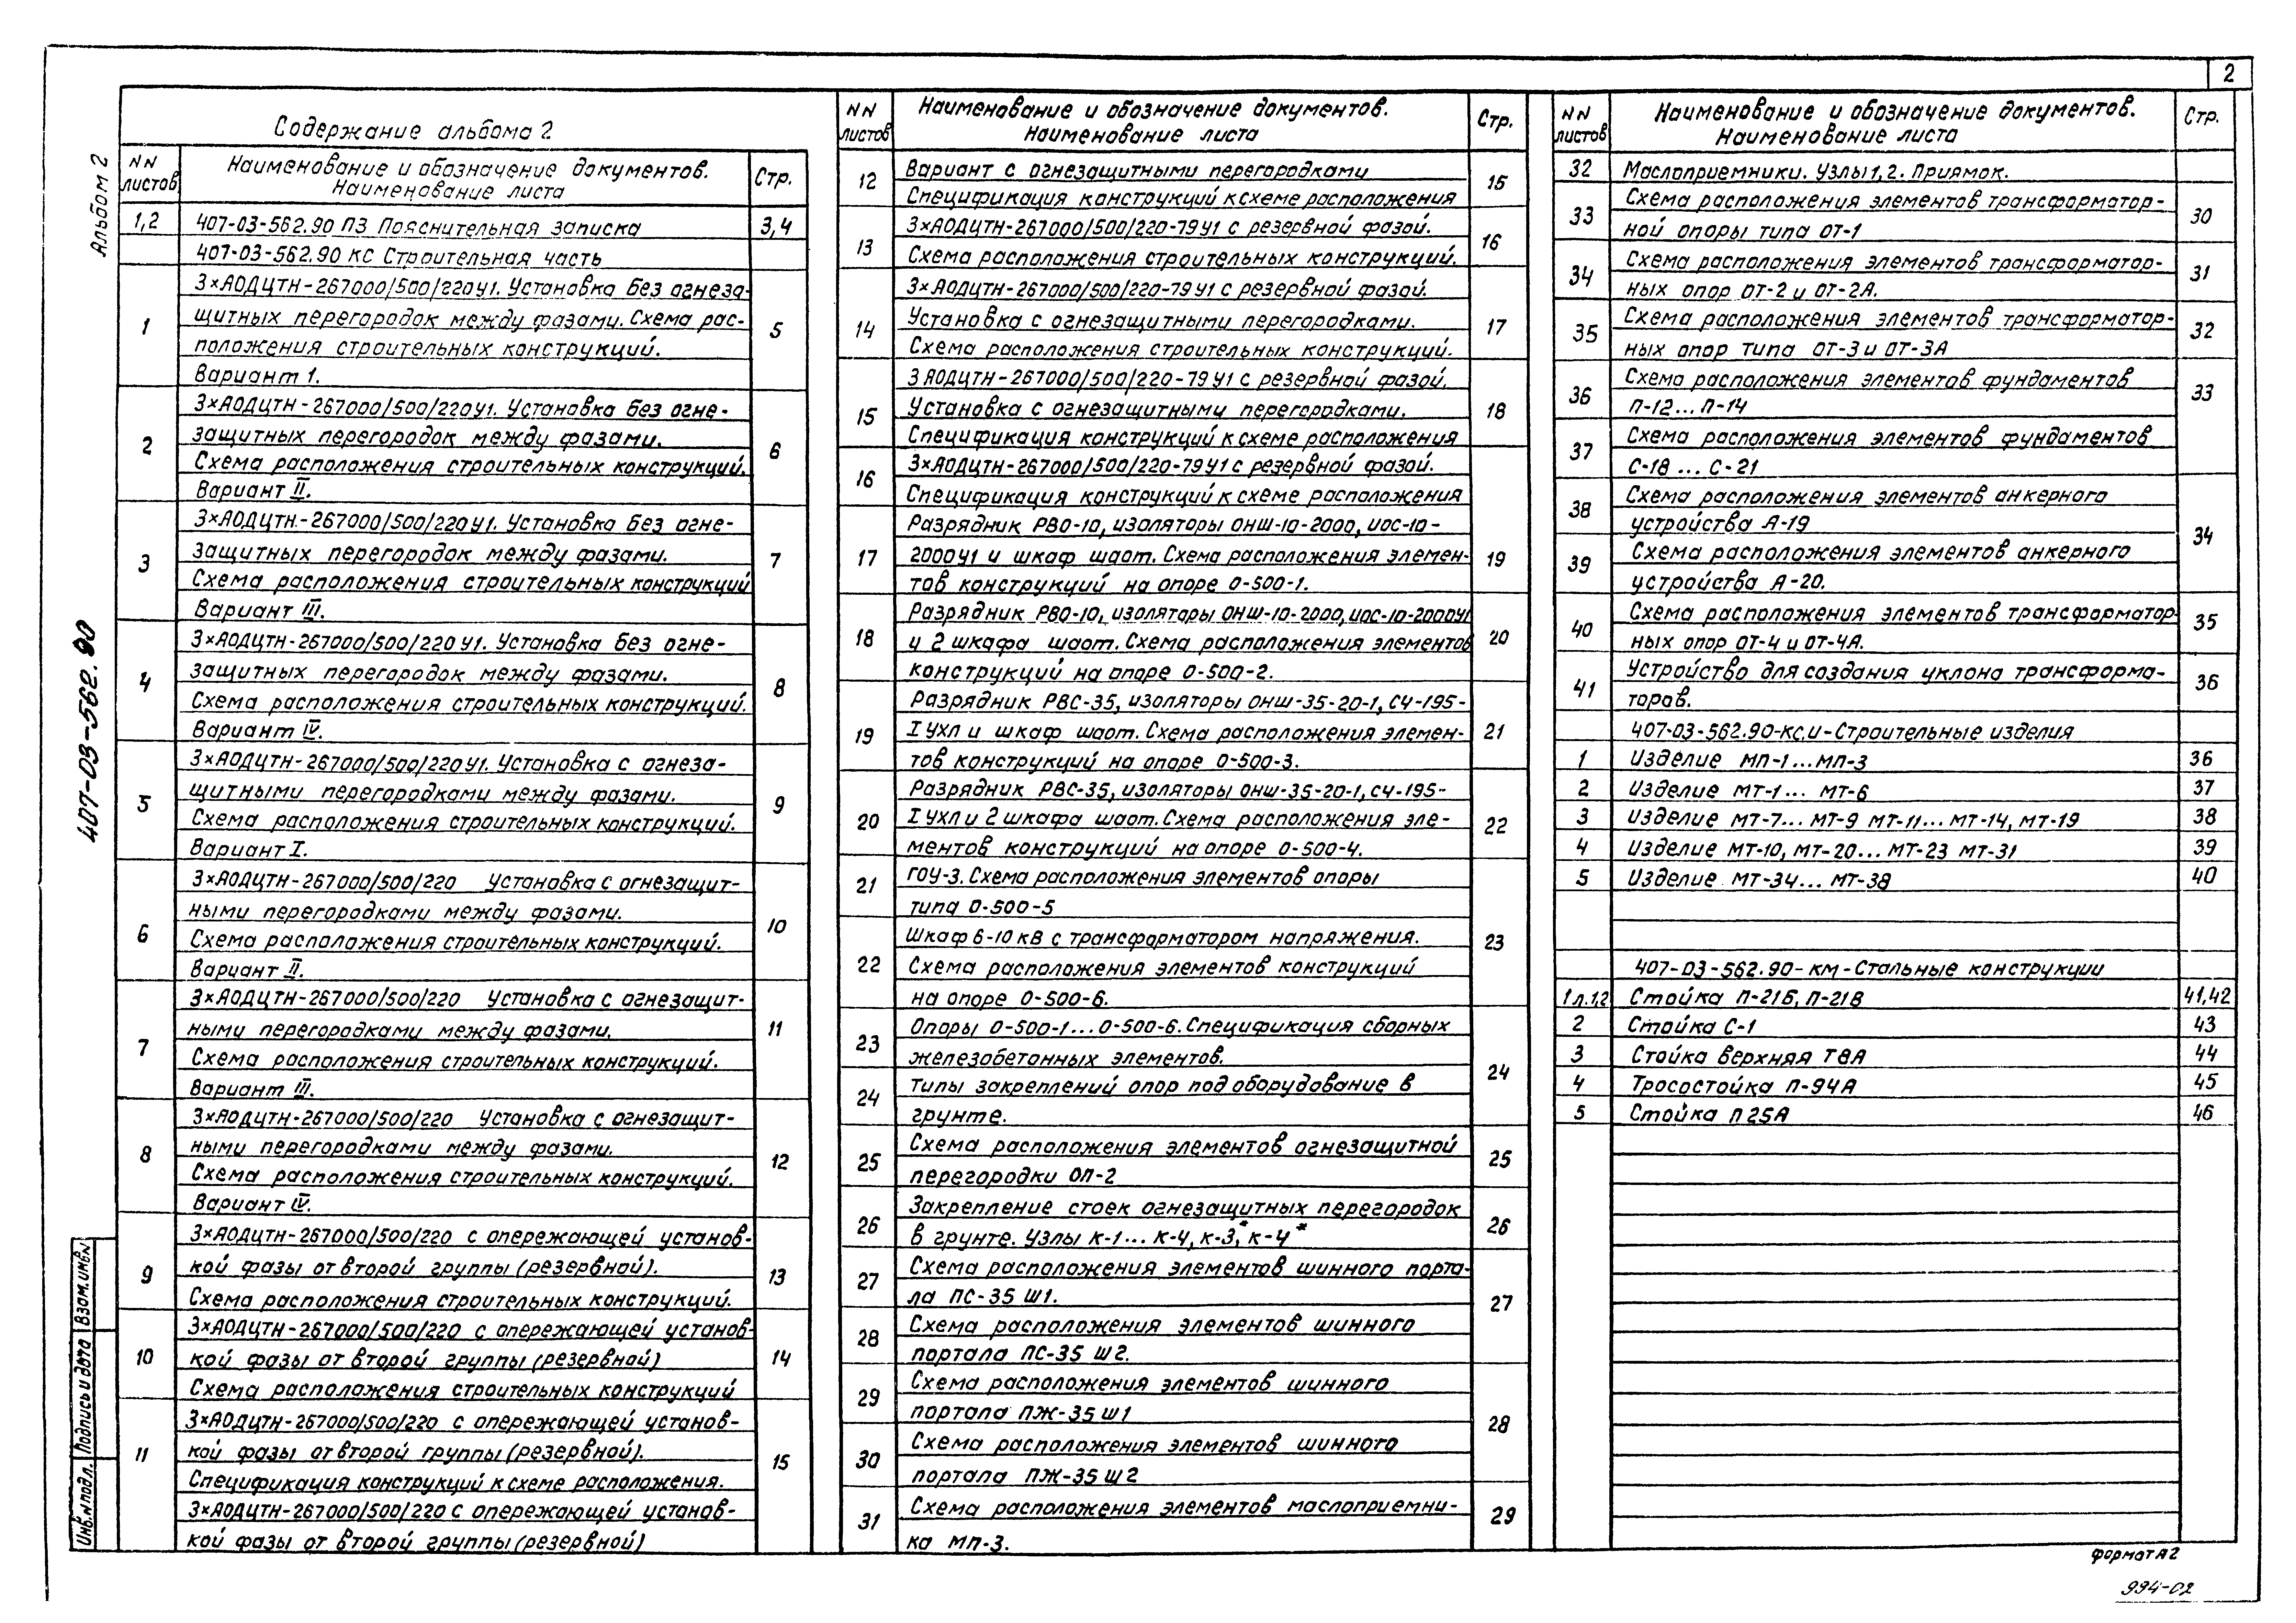 2
Альбом 2
407-03-562.90
Содержание альбома 2
NN листов
Наименование и обозначение документов.
Наименование листа
Стр.
1,2 407-03-562.90 ПЗ Пояснительная записка 3,4
407-03-562.90 КС Строительная часть
3×АОДЦТН-267000/500/220У1. Установка без огнеза-
1 щитных перегородок между фазами. Схема рас- 5
положения строительных конструкций.
Вариант 1.
3×АОДЦТН-267000/500/220У1. Установка без огне-
2 защитных перегородок между фазами. 6
Схема расположения строительных конструкций.
Вариант II.
3×АОДЦТН.-267000/500/220У1. Установка без огне-
3 защитных перегородок между фазами. 7
Схема расположения строительных конструкций
Вариант III.
3×АОДЦТН-267000/500/220У1. Установка без огне-
4 защитных перегородок между фазами. 8
Схема расположения строительных конструкций.
Вариант IV.
3×АОДЦТН-267000/500/220У1. Установка с огнеза-
5 щитными перегородками между фазами. 9
Схема расположения строительных конструкций.
Вариант I.
3×АОДЦТН-267000/500/220 Установка с огнезащит-
6 ными перегородками между фазами. 10
Схема расположения строительных конструкций.
Вариант II.
3×АОДЦТН-267000/500/220 Установка с огнезащит-
7 ными перегородками между фазами. 11
Схема расположения строительных конструкций.
Вариант III.
3×АОДЦТН-267000/500/220 Установка с огнезащит-
8 ными перегородками между фазами. 12
Схема расположения строительных конструкций.
Вариант IV.
3×АОДЦТН-267000/500/220 с опережающей установ-
9 кой фазы от второй группы (резервной). 13
Схема расположения строительных конструкций.
3×АОДЦТН-267000/500/220 с опережающей установ-
10 кой фазы от второй группы (резервной) 14
Схема расположения строительных конструкций
3×АОДЦТН-267000/500/220 с опережающей установ-
11 кой фазы от второй группы (резервной). 15
Спецификация конструкций к схеме расположения.
3×АОДЦТН-267000/500/220 с опережающей установ-
кой фазы от второй группы (резервной)
NN листов
Наименование и обозначение документов.
Наименование листа
Стр.
12 Вариант с огнезащитными перегородками 15
Спецификация конструкций к схеме расположения
13 3×АОДЦТН-267000/500/220-79У1 с резервной фазой. 16
Схема расположения строительных конструкций.
3×АОДЦТН-267000/500/220-79У1 с резервной фазой.
14 Установка с огнезащитными перегородками. 17
Схема расположения строительных конструкций.
3 АОДЦТН-267000/500/220-79У1 с резервной фазой.
15 Установка с огнезащитными перегородками. 18
Спецификация конструкций к схеме расположения
16 3×АОДЦТН-267000/500/220-79У1 с резервной фазой.
Спецификация конструкций к схеме расположения
Разрядник РВО-10, изоляторы ОНШ-10-2000, ИОС-10-
17 2000У1 и шкаф шаот. Схема расположения элемен- 19
тов конструкций на опоре О-500-1.
Разрядник РВО-10, изоляторы ОНШ-10-2000, ИОС-10-2000У1
18 и 2 шкафа шаот. Схема расположения элементов 20
конструкций на опоре О-500-2.
Разрядник РВС-35, изоляторы ОНШ-35-20-1, СЧ-195-
19 I УХЛ и шкаф шаот. Схема расположения элемен- 21
тов конструкций на опоре О-500-3.
Разрядник РВС-35, изоляторы ОНШ-35-20-1, СЧ-195-
20 I УХЛ и 2 шкафа шаот. Схема расположения эле- 22
ментов конструкций на опоре О-500-4.
21 ГОУ-3. Схема расположения элементов опоры
типа О-500-5
Шкаф 6-10 кВ с трансформатором напряжения. 23
22 Схема расположения элементов конструкций
на опоре О-500-6.
23 Опоры О-500-1...О-500-6. Спецификация сборных
железобетонных элементов.
24 Типы закреплений опор под оборудование в 24
грунте.
25 Схема расположения элементов огнезащитной 25
перегородки ОП-2
26 Закрепление стоек огнезащитных перегородок 26
в грунте. Узлы К-1... К-4, К-3*, К-4*
27 Схема расположения элементов шинного порта-
ла ПС-35 Ш1. 27
28 Схема расположения элементов шинного
портала ПС-35 Ш2.
29 Схема расположения элементов шинного
портала ПЖ-35 Ш1 28
30 Схема расположения элементов шинного
портала ПЖ-35 Ш2
31 Схема расположения элементов маслоприемни- 29
ка МП-3.
NN листов
Наименование и обозначение документов.
Наименование листа
Стр.
32 Маслоприемники. Узлы 1, 2. Приямок.
33 Схема расположения элементов трансформатор- 30
ной опоры типа ОТ-1
34 Схема расположения элементов трансформатор- 31
ных опор ОТ-2 и ОТ-2А.
35 Схема расположения элементов трансформатор- 32
ных опор типа ОТ-3 и ОТ-3А
36 Схема расположения элементов фундаментов 33
П-12... П-14
37 Схема расположения элементов фундаментов
С-18 ... С-21
38 Схема расположения элементов анкерного
устройства А-19 34
39 Схема расположения элементов анкерного
устройства А-20.
40 Схема расположения элементов трансформатор- 35
ных опор ОТ-4 и ОТ-4А.
41 Устройство для создания уклона трансформа- 36
торов.
407-03-562.90-КС.И-Строительные изделия
1 Изделие МП-1...МП-3 36
2 Изделие МТ-1... МТ-6 37
3 Изделие МТ-7... МТ-9 МТ-11... МТ-14, МТ-19 38
4 Изделие МТ-10, МТ-20... МТ-23 МТ-31 39
5 Изделие МТ-34... МТ-38 40
407-03-562.90-КМ-Стальные конструкции
1 л.1,2 Стойка П-21Б, П-21В 41,42
2 Стойка С-1 43
3 Стойка верхняя Т8А 44
4 Тросостойка П-94А 45
5 Стойка П25А 46
Инв.N подл.
Подпись и дата
Взам.инв.N
Формат А2
994-02